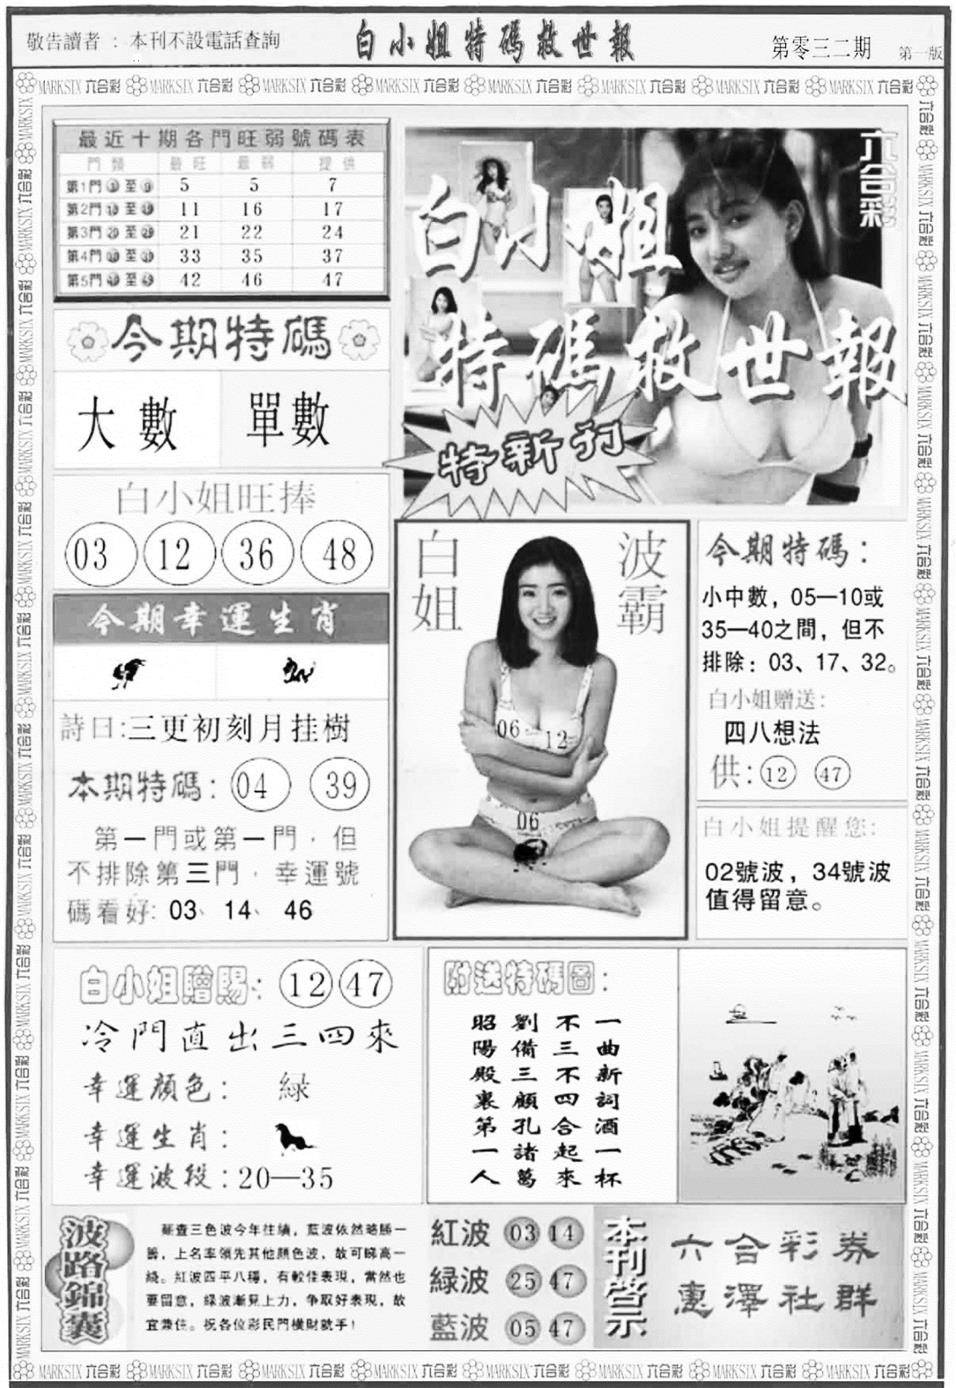 敬告讀者：本刊不設電話查詢
白小姐特碼救世報
第零三二期
第一版
MARKSIX 六合彩
最近十期各門旺弱號碼表
門類 最旺 最弱 提供
第1門 至 9 5 5 7
第2門 至 11 16 17
第3門 20 至 29 21 22 24
第4門 至 33 35 37
第5門 至 42 46 47
今期特碼
大數 單數
白小姐旺捧
03 12 36 48
今期幸運生肖
詩曰:三更初刻月挂樹
本期特碼: 04 39
第一門或第一門，但
不排除第三門，幸運號
碼看好: 03、14、46
六合彩
白小姐
特碼救世報
特新刊
白姐
波霸
06 12
06
今期特碼：
小中數，05—10或
35—40之間，但不
排除：03、17、32。
白小姐贈送:
四八想法
供: 12 47
白小姐提醒您:
02號波，34號波
值得留意。
白小姐贈賜: 12 47
冷門直出三四來
幸運顏色： 緑
幸運生肖：
幸運波段:20—35
附送特碼圖：
一曲新詞酒一杯
不三不四合起來
劉備三顧孔諸葛
昭陽殿裏第一人
波路錦囊
蘇查三色波今年往績，藍波依然略勝一
籌，上名率領先其他顏色波，故可睇高一
綫。紅波四平八穩，有較佳表現，當然也
要留意，緑波漸見上力，争取好表現，故
宜兼住。祝各位彩民門橫財就手！
紅波 03 14
緑波 25 47
藍波 05 47
本刊啓示
六合彩券
惠澤社群